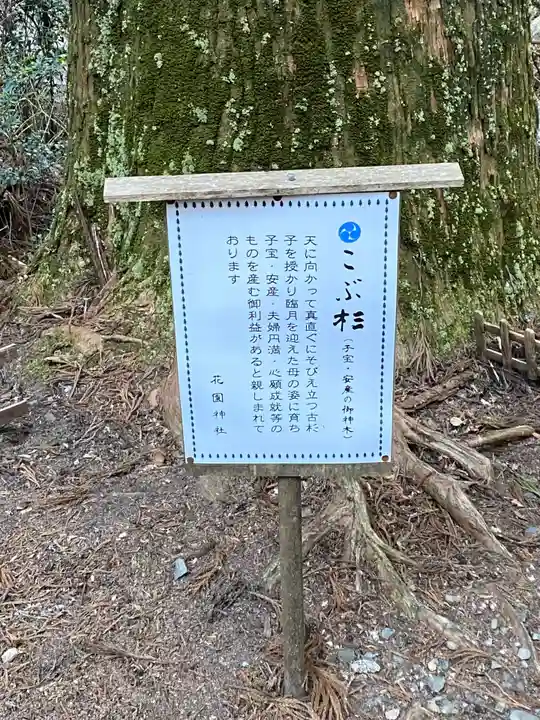 こぶ杉（子宝・安産の御神木）
天に向かって真直ぐにそびえ立つ古杉
子を授かり臨月を迎えた母の姿に育ち
子宝・安産・夫婦円満・心願成就等の
ものを産む御利益があると親しまれて
おります
花園神社